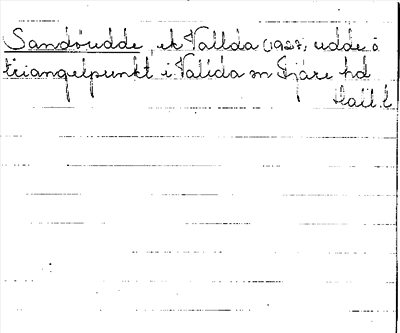 Sandöudde, ek Vallda (1927, udde o
triangelpunkt i Vallda sn Fjäre hd
Hall. l.